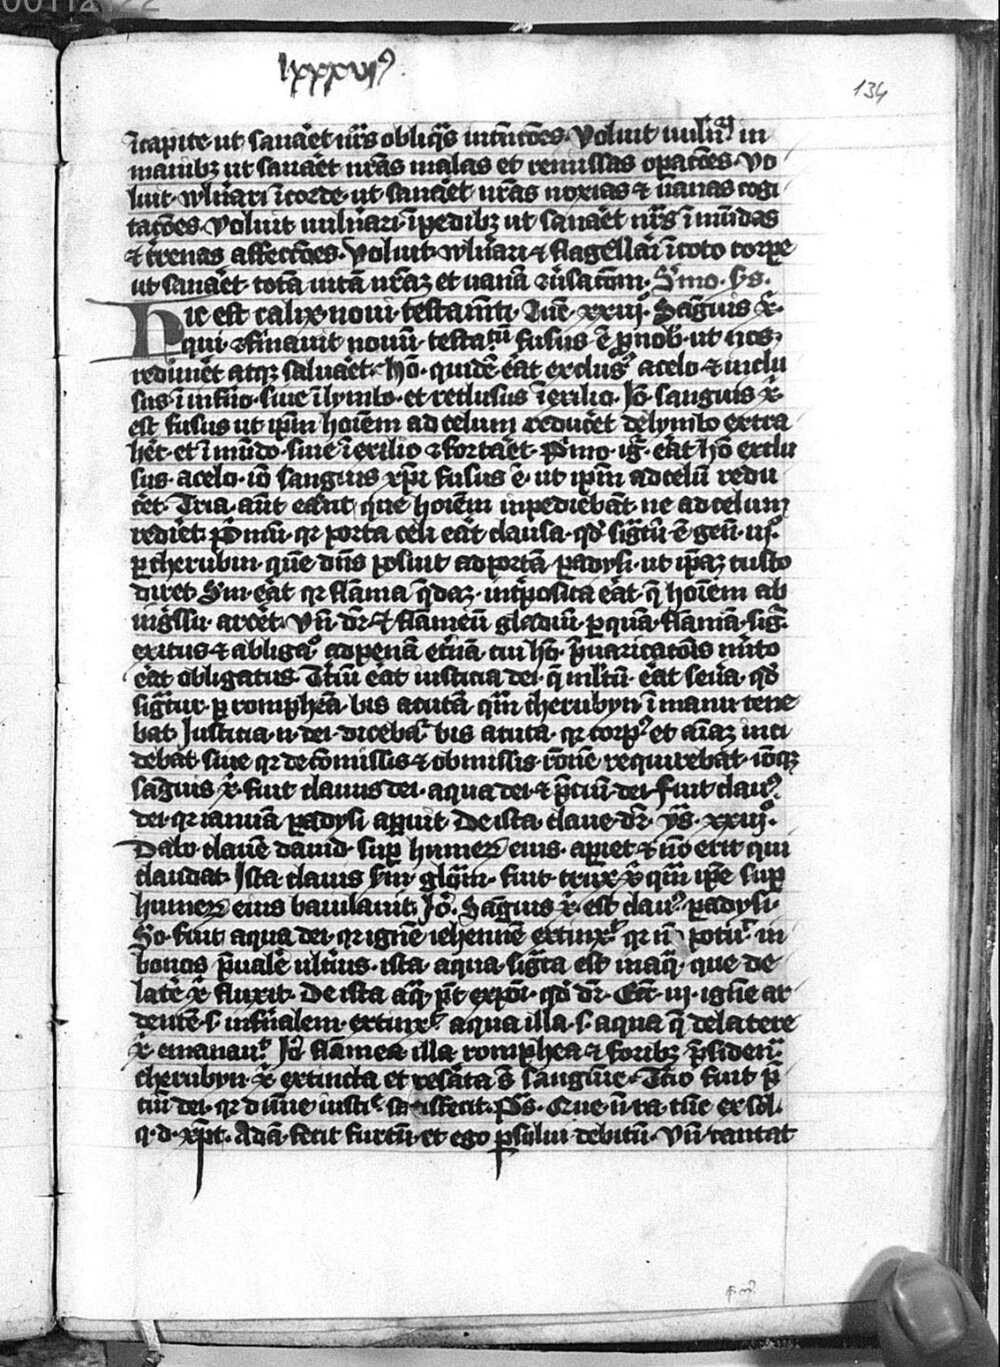 lxxxvi⁹
134
ĩcapite ut sanaẽt nr̃s obliq̃s intẽtões. Voluit uuln̾ari in
manibꝫ ut sanaẽt nrãs malas et remissas oꝑacões. Vo
luit wln̾ari ĩ corde ut sanaẽt nrãs noxias ⁊ uanas cogi
tacões. Voluit uuln̾ari ĩ pedibꝫ ut sanaẽt nr̃s ĩmũdas
⁊ t̾renas affectões. Voluit wln̾ari ⁊ flagellari ĩ toto corꝑe
ut sanaẽt totã uitã nrãꝫ et uanã ꝯũsacõm. Sẽmo. ys.
Hic est calix noui testam̃ti. Luc̃. xxij. Sãguis x̃.
qui ꝯfirmauit nouũ testam̃tũ fusus ẽ ꝓ nob̾ ut nos
redim̃et atqꝫ saluaẽt. Hõ quidẽ erat exclus⁹ a celo ⁊ inclu
sus ĩ inf̾no siue ĩ lymbo et reclusus ĩ exilio. Iõ sanguis x̃.
est fusus ut ip̃m hoĩem ad celum reducẽt de lymbo extra
hẽt et ĩ mũdo siue ĩ exilio ꝯfortaẽt. P̾mo ig̾ erat hõ exclu
sus a celo. iõ sanguis xp̃i fusus ẽ ut ip̃m ad celũ redu
cẽt. Tria aũt erãt que hoĩem inpediebãt ne ad celum
redirẽt. P̾mũ qꝛ porta celi erat clausa. qd̾ sig̾tũ ẽ geñ. iij.
ꝑ cherubin quẽ dñs posuit ad portã ꝑadysi ut ip̃aꝫ custo
diret. Scd̾m erat qꝛ flãma q̃daꝫ int̾posita erat q̃ hoĩem ab
ing̾ssu arcẽt. Vñ dr̃ ⁊ flãmeũ gladiũ. ꝑ quã flãmã sig̾
reatus ⁊ obliga⁰ ad penã et̾nã cui hõ p̾uaricacõis m̾ito
erat obligatus. T̾ciũ erat iusticia dei q̃ mĩtũ erat seũa. qd̾
sig̾tur ꝑ romphẽã bis acutã quã cherubyn ĩ manu tene
bat. Iusticia .n. dei diceba⁊ bis acuta qꝛ corp⁹ et aĩaꝫ inci
debat siue qꝛ de cõmissis ⁊ obmissis rõnẽ requirebat. iõqꝫ
sãguis x̃. fuit clauus dei. aqua dei ⁊ p̾ciũ dei. Fuit claũ⁹
dei qꝛ ianuã ꝑadysi aꝑuit. De ista claue dr̃ ys. xxij⁰.
Dabo clauẽ dauid suꝑ humerꝝ eius. aꝑiet ⁊ nõ erit qui
claudat. Ista clauis scd̾m glo̾m fuit crux x̃. quã ip̃e suꝑ
humerꝝ eius baiulauit. Iõ sãguis x̃. est claũ⁹ ꝑadysi.
So. fuit aqua dei qꝛ ignẽ iehenne extinx̾ qꝛ nõ potuit in
bonos p̾uale ult̾ius. ista aqua sig̾ta est in aq̃ que de
late̾ x̃. fluxit. De ista aq̃ p̾t exp̃oi qd̾ dr̃. Ecc̃. iij. ignẽ ar
dentẽ .s. inf̾nalem extinx̾ aqua illa .s. aqua q̃ de latere
x̃. emanauit. Iõ flãmea illa romphea ⁊ foribꝫ p̾siden⁊
cherubyn x̃. extincta et reserata ẽ sanguĩe. T̾cio fuit p̾
ciũ dei qꝛ diuĩe iusti⁊ satisfecit. Ps̃. Que ñ ra. tũc exsol.
q.d. xp̃c. Adã fecit furtũ et ego ꝑsolui debitũ. Vñ cantat